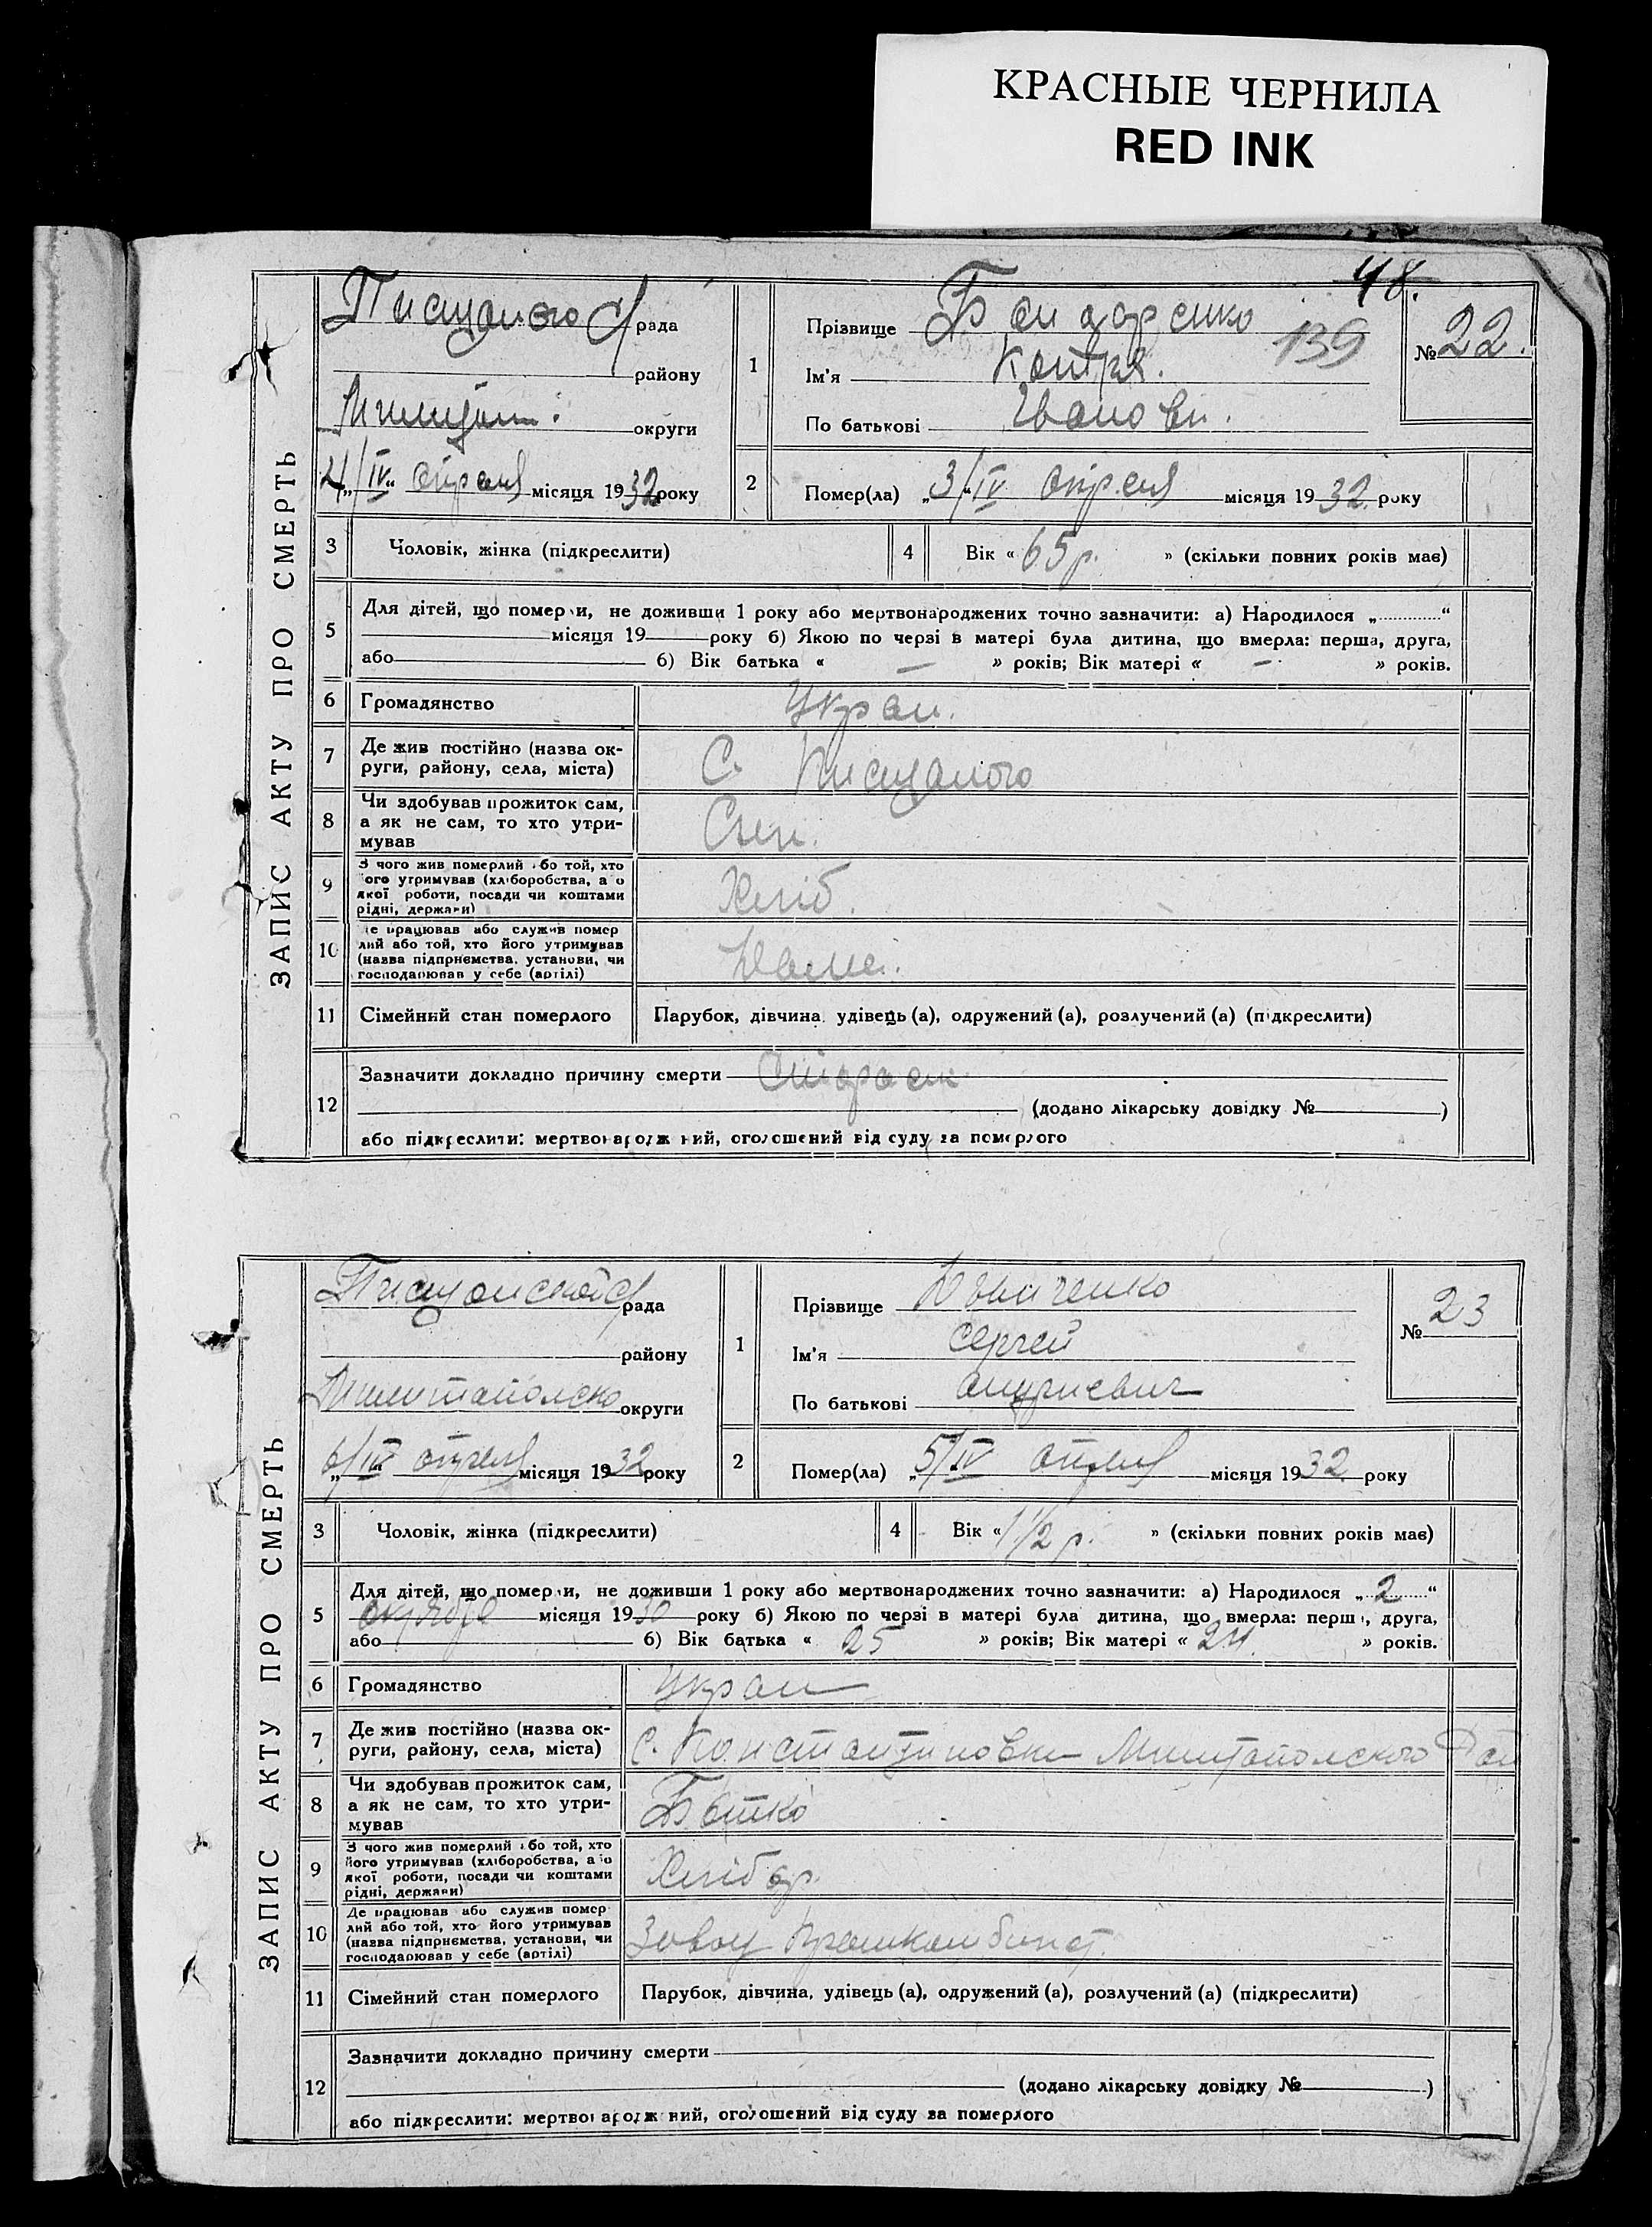 КРАСНЫЕ ЧЕРНИЛА
RED INK
48.
139
ЗАПИС АКТУ ПРО СМЕРТЬ
рада
району
округи
4/IV апреля місяця 1932 року
1 Прізвище Бондаренко
Ім'я Катря.
По батькові Іванови.
№ 22.
2 Помер(ла) „3/IV апреля місяця 1932 року
3 Чоловік, жінка (підкреслити)
4 Вік « 65 р. » (скільки повних років має)
5 Для дітей, що померли, не доживши 1 року або мертвонароджених точно зазначити: а) Народилося „ “
місяця 19 року б) Якою по черзі в матері була дитина, що вмерла: перша, друга,
або б) Вік батька « — » років; Вік матері « — » років.
6 Громадянство Украи.
7 Де жив постійно (назва ок-
руги, району, села, міста) С.
8 Чи здобував прожиток сам,
а як не сам, то хто утри-
мував
9 З чого жив померлий або той, хто
його утримував (хліборобства, або
якої роботи, посади чи коштами
рідні, держави) Хліб.
10 Де працював або служив помер
лий або той, хто його утримував
(назва підприємства, установи, чи
господарював у себе (артілі)
11 Сімейний стан померлого Парубок, дівчина, удівець (а), одружений (а), розлучений (а) (підкреслити)
12 Зазначити докладно причину смерти
(додано лікарську довідку № )
або підкреслити: мертвонароджений, оголошений від суду за померлого
ЗАПИС АКТУ ПРО СМЕРТЬ
рада
району
округи
6/IV апреля місяця 1932 року
1 Прізвище
Ім'я Сергей
По батькові
№ 23
2 Помер(ла) „5/IV апреля місяця 1932 року
3 Чоловік, жінка (підкреслити)
4 Вік « 1 1/2 р. » (скільки повних років має)
5 Для дітей, що померли, не доживши 1 року або мертвонароджених точно зазначити: а) Народилося „ 2 “
октября місяця 1930 року б) Якою по черзі в матері була дитина, що вмерла: перша, друга,
або б) Вік батька « 25 » років; Вік матері « 24. » років.
6 Громадянство Украи
7 Де жив постійно (назва ок-
руги, району, села, міста) с. Константиновка Мелитопольского Рай
8 Чи здобував прожиток сам,
а як не сам, то хто утри-
мував Батко
9 З чого жив померлий або той, хто
його утримував (хліборобства, або
якої роботи, посади чи коштами
рідні, держави) Хлібор.
10 Де працював або служив помер
лий або той, хто його утримував
(назва підприємства, установи, чи
господарював у себе (артілі)
11 Сімейний стан померлого Парубок, дівчина, удівець (а), одружений (а), розлучений (а) (підкреслити)
12 Зазначити докладно причину смерти
(додано лікарську довідку № )
або підкреслити: мертвонароджений, оголошений від суду за померлого